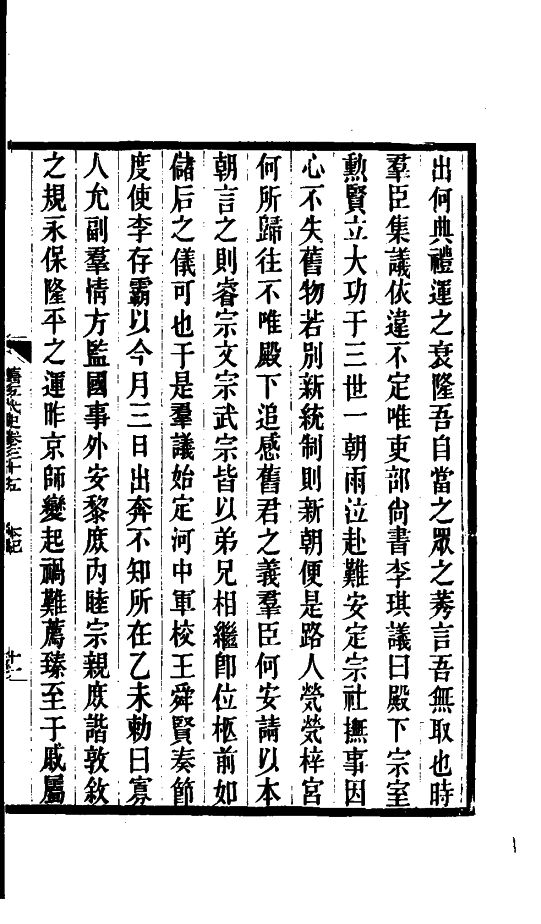 出何典禮運之衰隆吾自當之眾之莠言吾無取也時
羣臣集議依違不定唯吏部尙書李琪議曰殿下宗室
勲賢立大功于三世一朝雨泣赴難安定宗社撫事因
心不失舊物若別新統制則新朝便是路人煢煢梓宮
何所歸往不唯殿下追感舊君之義羣臣何安請以本
朝言之則睿宗文宗武宗皆以弟兄相繼卽位柩前如
儲后之儀可也于是羣議始定河中軍校王舜賢奏節
度使李存霸以今月三日出奔不知所在乙未勅曰寡
人允副羣情方監國事外安黎庶內睦宗親庶諧敦敘
之規永保隆平之運昨京師變起禍難薦臻至于戚屬
舊五代史卷三十五 本紀 十一